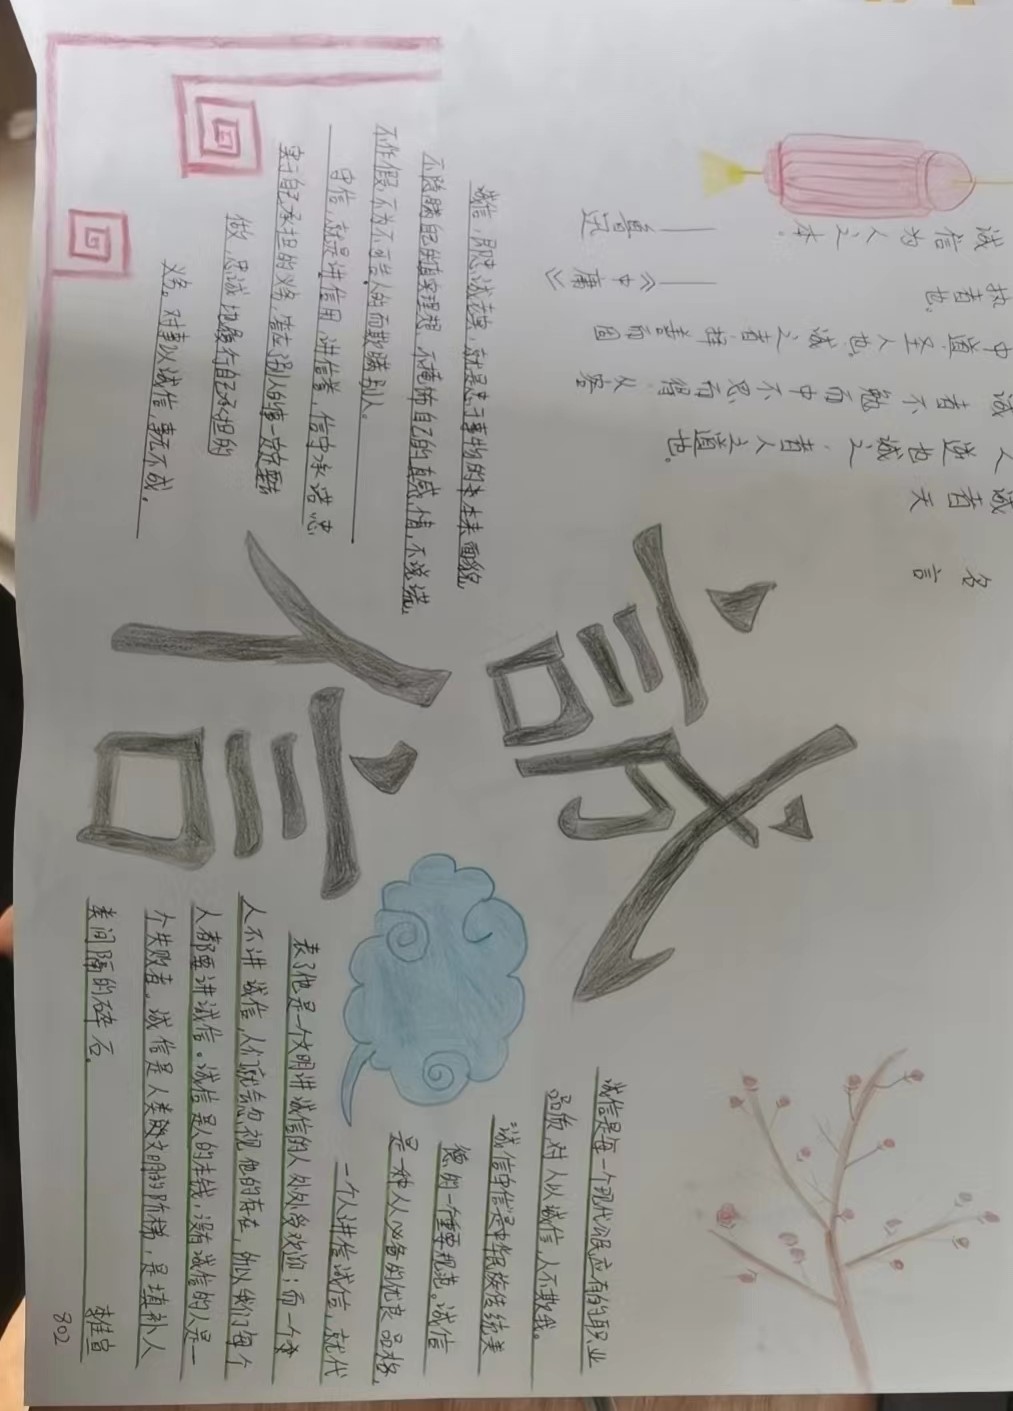 诚信
名言
诚者天
人道也诚之者人之道也。
诚者不勉而中不思而得从容
中道圣人也诚之者择善而固
执者也。
——《中庸》
诚信为人之本。
——鲁迅
诚信,即忠诚老实,就是忠于事物的本来面貌,
不隐瞒自己的真实理想,不掩饰自己的真感情,不说谎,
不作假,不为不可告人的而欺瞒别人。
守信,就是讲信用,讲信誉,信守承诺忠
实于自己承担的义务,答应了别人的事一定要
做,忠诚地履行自己承担的
义务。对事以诚信,事无不成。
诚信是每一个现代公民应有的职业
品质对人以诚信,人不欺我。
诚信守信是中华民族传统美
德的一个重要规范。诚信
是一种人人必备的优良品格,
一个人讲信诚信,就代
表了他是一个文明讲诚信的人处处受欢迎;而一个
人不讲诚信,人们就会忽视他的存在,所以我们每个
人都要讲诚信。诚信是人的本钱,没有诚信的人是一
个失败者。诚信是人类文明的阶梯,是填补人
类间隔的碎石。
802